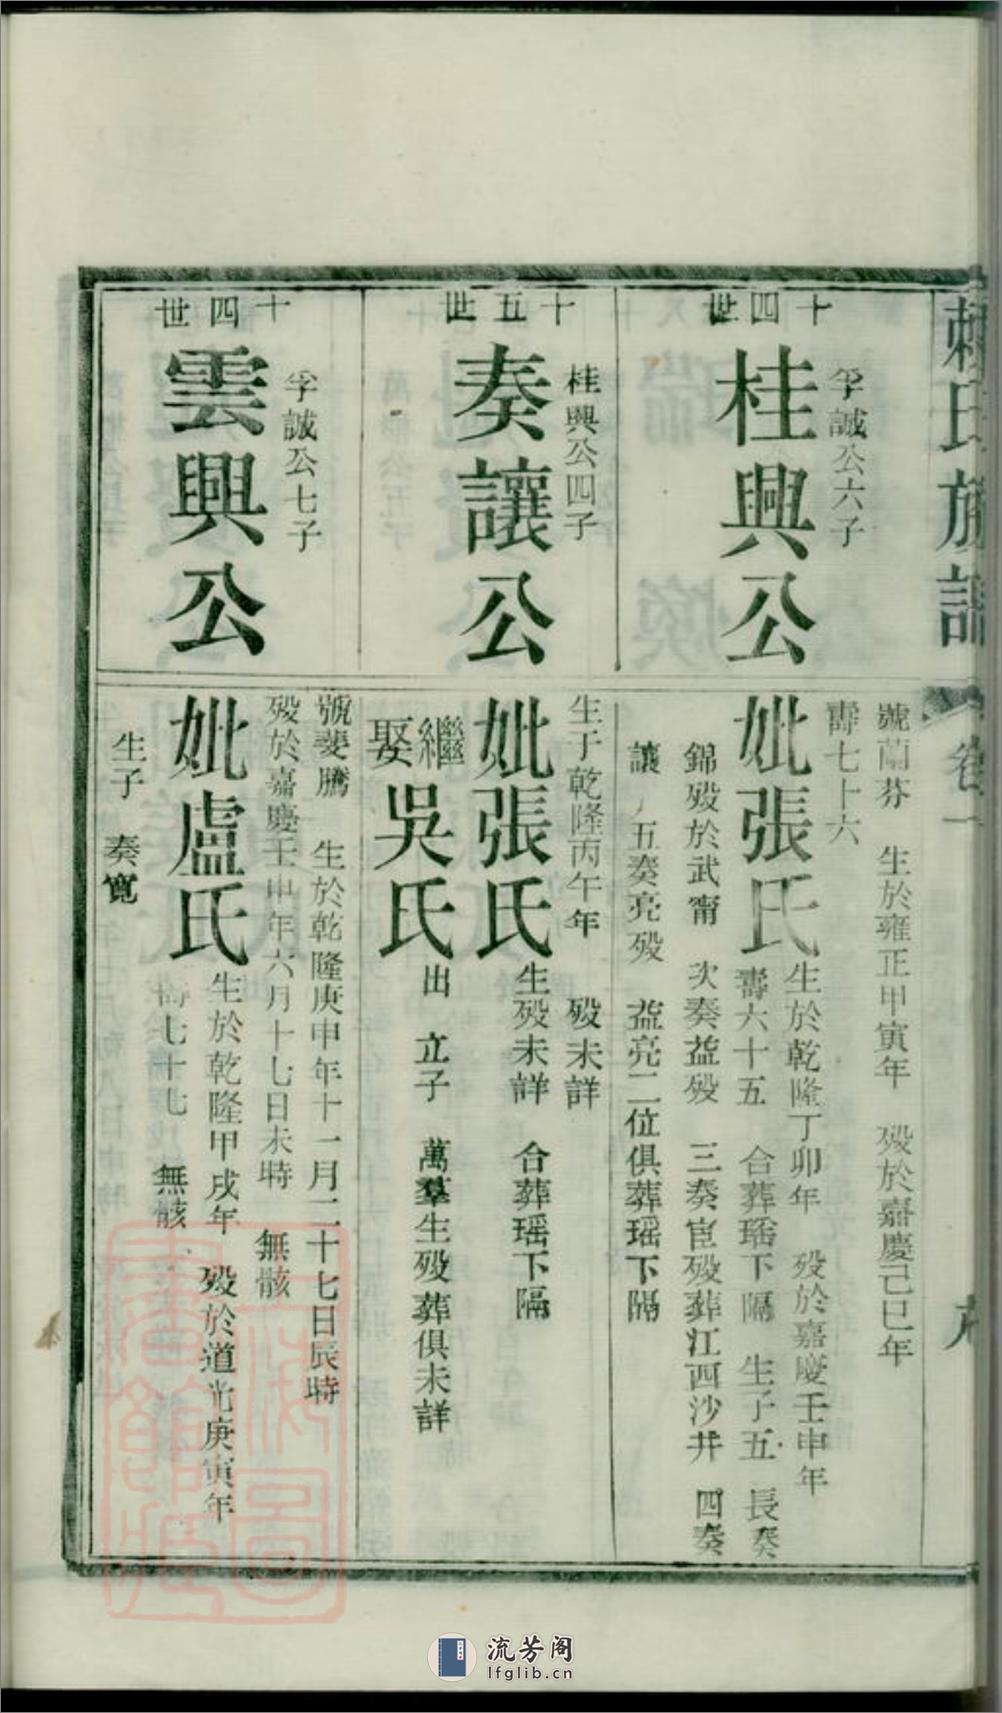 賴氏族譜
卷一
十四世
孚誠公六子
桂興公
號蘭芬 生於雍正甲寅年 歿於嘉慶己巳年
壽七十六
妣張氏
生於乾隆丁卯年 歿於嘉慶壬申年
壽六十五 合葬瑶下隔 生子五 長奏
錦歿於武甯 次奏益歿 三奏宦歿葬江西沙井 四奏
讓 五奏亮歿 益亮二位俱葬瑶下隔
十五世
桂興公四子
奏讓公
生于乾隆丙午年 歿未詳
妣張氏
生歿未詳 合葬瑶下隔
繼娶吳氏
出 立子 萬羣生歿葬俱未詳
十四世
孚誠公七子
雲興公
號斐騰 生於乾隆庚申年十一月二十七日辰時
歿於嘉慶壬申年六月十七日未時 無骸
妣盧氏
生於乾隆甲戌年 歿於道光庚寅年
壽七十七 無骸
生子 奏寬
上海圖書館藏
流芳阁
lfglib.cn